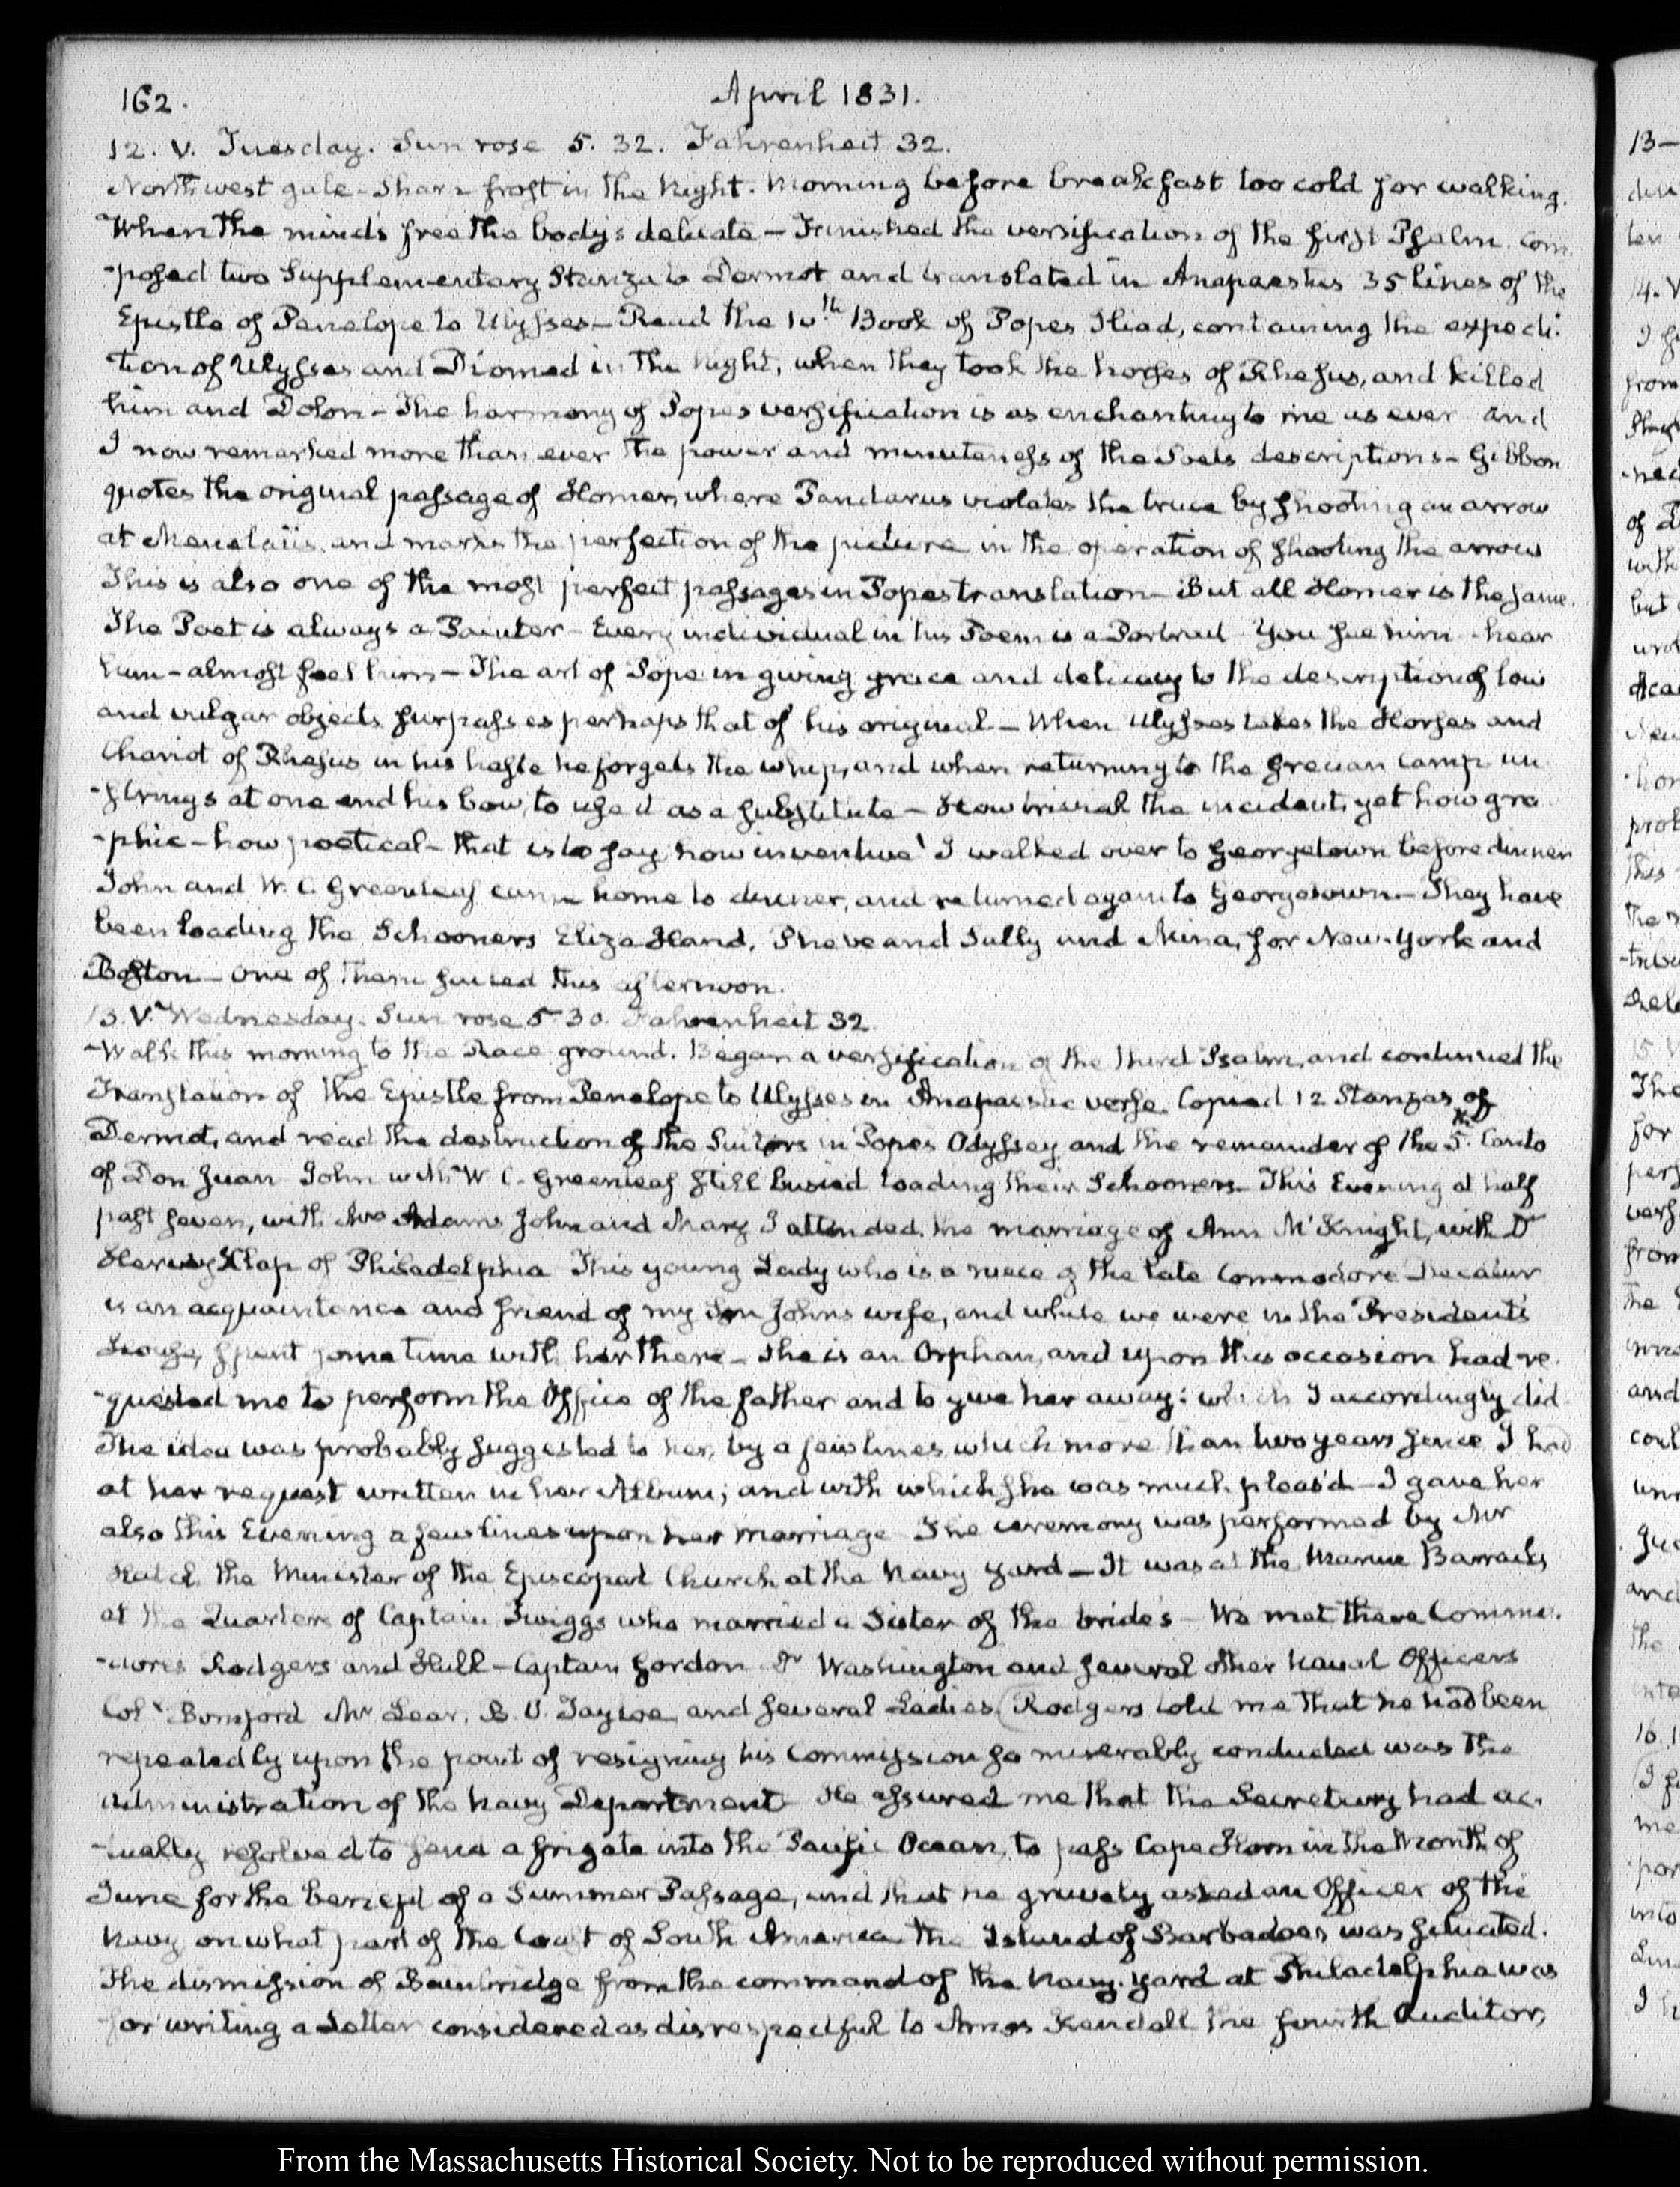 162.
April 1831.
12. V. Tuesday. Sun rose 5. 32. Fahrenheit 32.
Northwest gale - Sharp frost in the Night. Morning before breakfast too cold for walking.
When the mind's free the body's delicate — Finished the versification of the first Psalm. Com
-posed two Supplementary Stanza's to Dermot and translated in Anapaestics 35 lines of the
Epistle of Penelope to Ulysses — Read the 10th Book of Popes Iliad, containing the expedi-
tion of Ulysses and Diomed in the Night, when they took the horses of Rhesus, and killed
him and Dolon — The harmony of Popes versification is as enchanting to me as ever and
I now remarked more than ever the power and minuteness of the Poets descriptions — Gibbon
quotes the original passage of Homer, where Pandarus violates the truce by shooting an arrow
at Menelaüs, and marks the perfection of the picture in the operation of shooting the arrow
This is also one of the most perfect passages in Popes translation — But all Homer is the same.
The Poet is always a Painter — Every individual in his Poem is a Portrait You see him - hear
him - almost feel him — The art of Pope in giving grace and delicacy to the description of low
and vulgar objects surpasses perhaps that of his original — When Ulysses takes the Horses and
Chariot of Rhesus in his haste he forgets the whip, and when returning to the Grecian Camp un
-strings at one end his bow, to use it as a substitute — How trivial the incident, yet how gra
-phic - how poetical - that is to say how inventive! I walked over to Georgetown before dinner
John and W. C. Greenleaf came home to dinner, and returned again to Georgetown — They have
been loading the Schooners Eliza Hand, Phebe and Sally and Mina, for New-York and
Boston — one of them sailed this afternoon.
13. V. Wednesday. Sun rose 5. 30. Fahrenheit 32.
Walk this morning to the Race ground. Began a versification of the third Psalm, and continued the
Translation of the Epistle from Penelope to Ulysses in Anapaestic verse. Copied 12 Stanzas of
Dermot, and read the destruction of the Suitors in Popes Odyssey and the remainder of the 5th Canto
of Don Juan John with W C. Greenleaf still busied loading their Schooners. This Evening at half
past seven, with Mrs Adams John and Mary I attended the marriage of Ann McKnight, with Dr
Harvey Klap of Philadelphia This young Lady who is a niece of the late Commodore Decatur
is an acquaintance and friend of my Son Johns wife, and while we were in the Presidents
House, spent some time with her there — She is an Orphan, and upon this occasion had re-
-quested me to perform the Office of the father and to give her away: which I accordingly did.
The idea was probably suggested to her, by a few lines, which more than two years since I had
at her request written in her Album; and with which she was much pleas'd — I gave her
also this Evening a few lines upon her marriage The ceremony was performed by Mr
Hatch the Minister of the Episcopal Church at the Navy Yard — It was at the Marine Barracks,
at the Quarters of Captain Twiggs who married a Sister of the bride's — We met there Commo.
-dores Rodgers and Hull — Captain Gordon Dr Washington and several other Naval Officers
Coll Bomford Mr Lear, B. O. Tayloe, and several Ladies. (Rodgers told me that he had been
repeatedly upon the point of resigning his Commission so miserably conducted was the
administration of the Navy Department He assured me that the Secretary had ac-
-tually resolved to send a frigate into the Pacific Ocean, to pass Cape Horn in the Month of
June for the benefit of a Summer Passage, and that he gravely asked an Officer of the
Navy on what part of the Coast of South America the Island of Barbadoes was situated.
The dismission of Bainbridge from the command of the Navy-yard at Philadelphia was
for writing a Letter considered as disrespectful to Amos Kendall the fourth Auditor,
From the Massachusetts Historical Society. Not to be reproduced without permission.